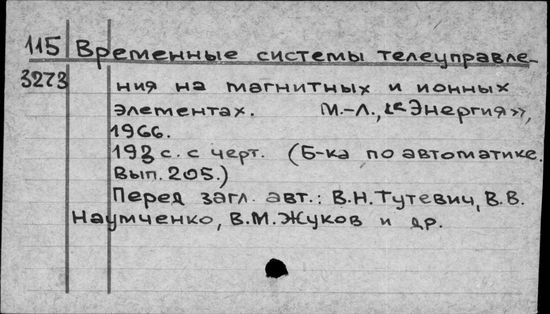 115 Временные системы телеуправле-
3273 ния на магнитных и ионных
элементах. М.-Л., "Энергия",
1966.
193 с. с черт. (Б-ка по автоматике.
Вып. 205.)
Перед загл. авт.: В.Н.Тутевич, В.В.
Наумченко, В.М.Жуков и др.